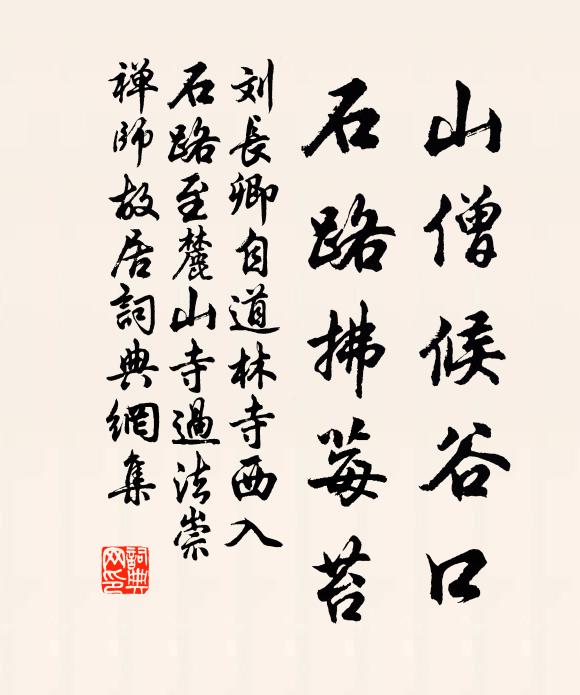 山僧候谷口
石路拂莓苔
刘長卿自道林寺西入
石路至麓山寺過法崇
禅師故居詞典網集
詞典网印